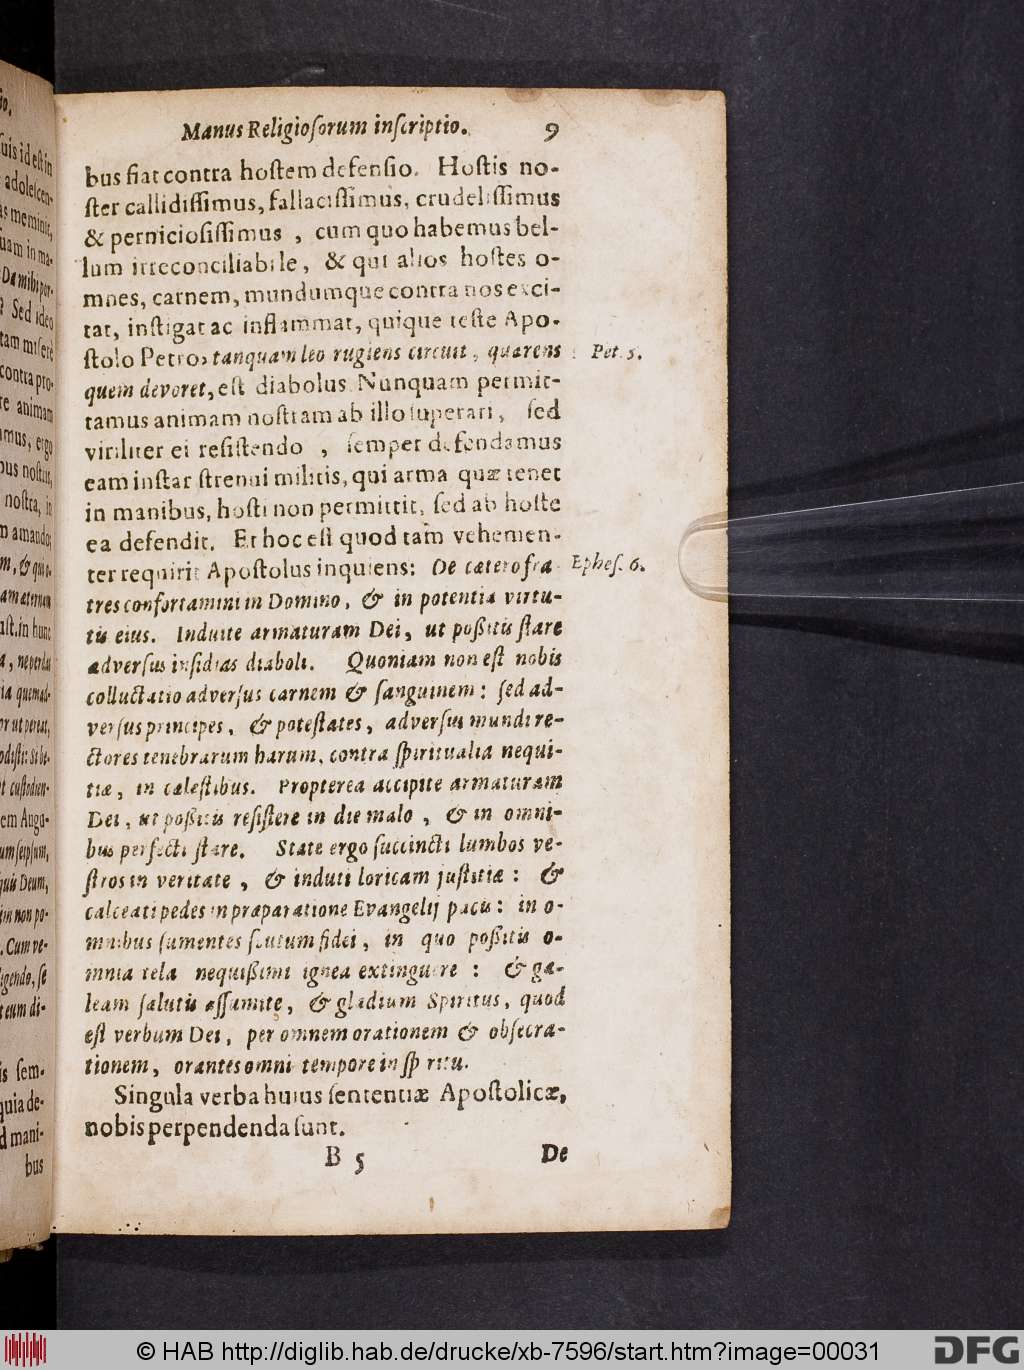 Manus Religioſorum inſcriptio. 9
bus fiat contra hoſtem defenſio. Hoſtis no-
ſter callidiſſimus, fallaciſſimus, crudeliſſimus
& perniciosiſſimus , cum quo habemus bel-
lum irreconciliabile, & qui alios hoſtes o-
mnes, carnem, mundumque contra nos exci-
tat, inſtigat ac inflammat, quique teſte Apo-
ſtolo Petro, tanquam leo rugiens circuit , quærens
Pet. 5.
quem devoret, eſt diabolus. Nunquam permit-
tamus animam noſtram ab illo ſuperari, ſed
viriliter ei reſiſtendo , ſemper defendamus
eam inſtar ſtrenui militis, qui arma quæ tenet
in manibus, hoſti non permittit, ſed ab hoſte
ea defendit. Et hoc eſt quod tam vehemen-
ter requirit Apoſtolus inquiens: De cætero fra-
Epheſ. 6.
tres confortamini in Domino, & in potentia virtu-
tis eius. Induite armaturam Dei, ut poßitis ſtare
adverſus inſidias diaboli. Quoniam non eſt nobis
colluctatio adverſus carnem & ſanguinem: ſed ad-
verſus principes, & poteſtates, adverſus mundi re-
ctores tenebrarum harum, contra ſpiritualia nequi-
tiæ, in cæleſtibus. Propterea accipite armaturam
Dei, ut poßitis reſiſtere in die malo , & in omni-
bus perfecti ſtare. State ergo ſuccincti lumbos ve-
ſtros in veritate , & induti loricam juſtitiæ : &
calceati pedes in præparatione Evangelij pacis : in o-
mnibus ſumentes ſcutum fidei, in quo poßitis o-
mnia tela nequißimi ignea extinguere : & ga-
leam ſalutis aſſumite, & gladium Spiritus, quod
eſt verbum Dei, per omnem orationem & obſecra-
tionem, orantes omni tempore in ſpiritu.
Singula verba huius ſententiæ Apoſtolicæ,
nobis perpendenda ſunt.
B 5 De
© HAB http://diglib.hab.de/drucke/xb-7596/start.htm?image=00031
DFG